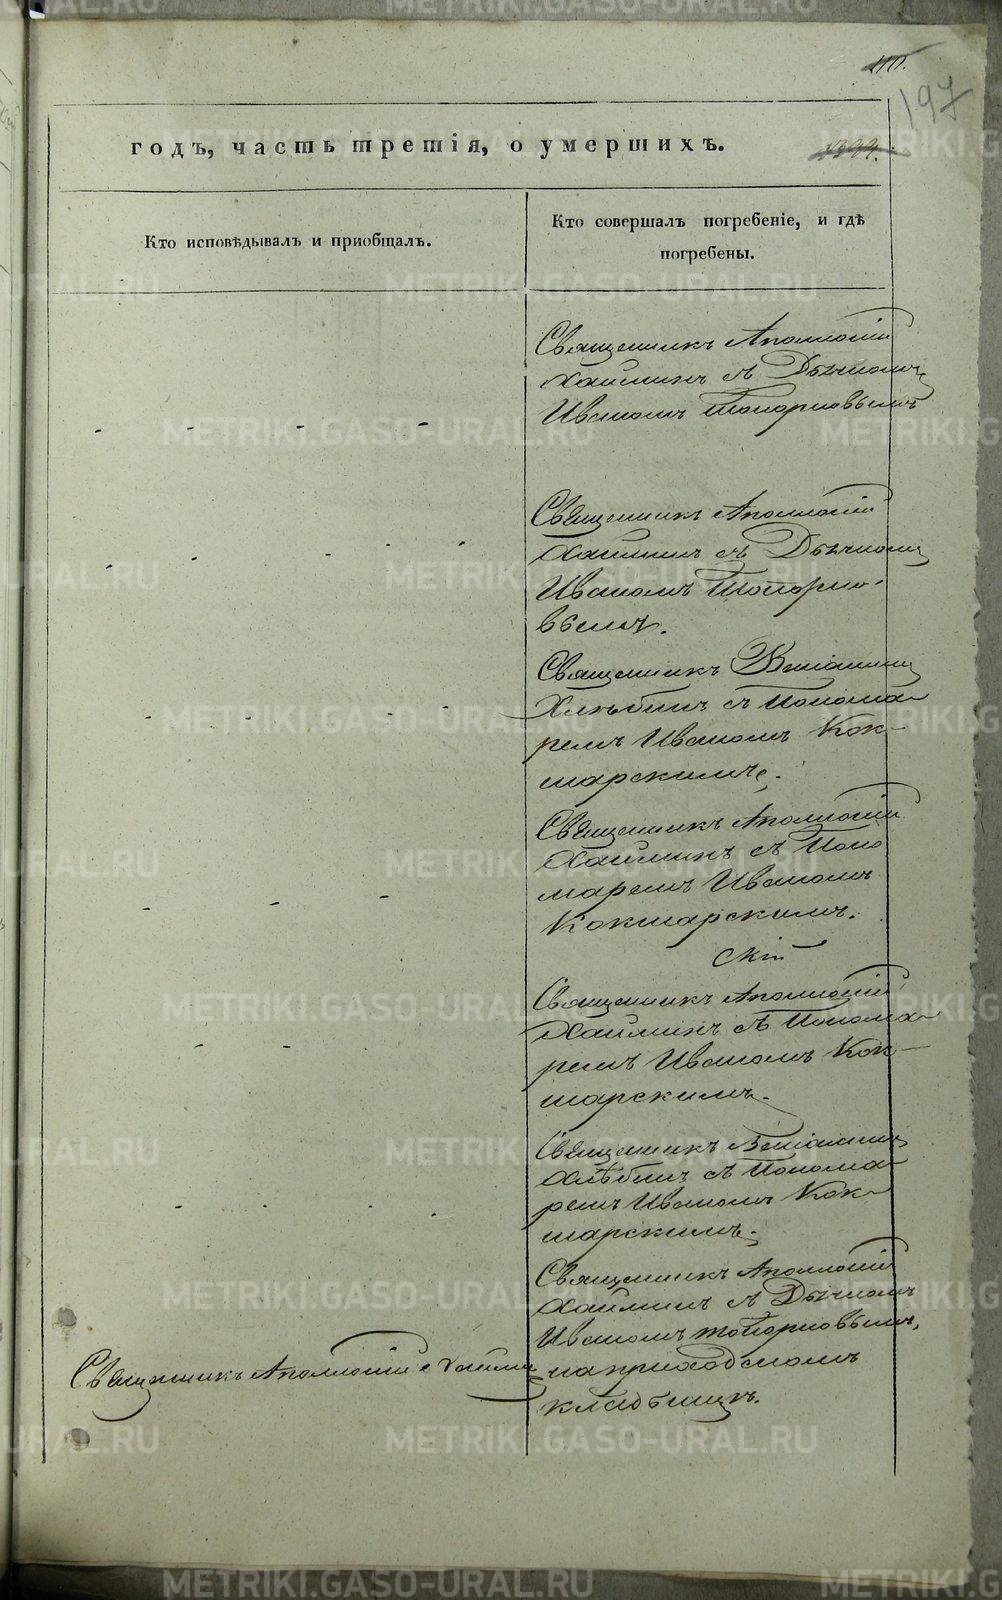 197
годъ, часть третія, о умершихъ.
Кто исповѣдывалъ и приобщалъ.
Кто совершалъ погребеніе, и гдѣ
погребены.
Священникъ Аполлоній
Хаймин съ Дьячкомъ
Иваномъ Топорковымъ
Священникъ Аполлоній
Хайминъ съ Дьячкомъ
Иваномъ Топорко-
вымъ.
Священникъ Веніаминъ
Хлѣбинъ съ Понома-
ремъ Иваномъ Кок-
шарскимъ.
Священникъ Аполлоній
Хайминъ съ Поно
маремъ Иваномъ
Кокшарскимъ.
скій
Священникъ Аполлоній
Хайминъ съ Понома-
ремъ Иваномъ Кок-
шарскимъ.
Священникъ Веніаминъ
Хлѣбинъ съ Понома-
ремъ Иваномъ Кок-
шарскимъ.
Священникъ Аполлоній
Хайминъ съ Дьячкомъ
Иваномъ Топорковымъ,
на приходскомъ
кладбищѣ.
Священникъ Аполлоній Хайминъ
METRIKI.GASO-URAL.RU